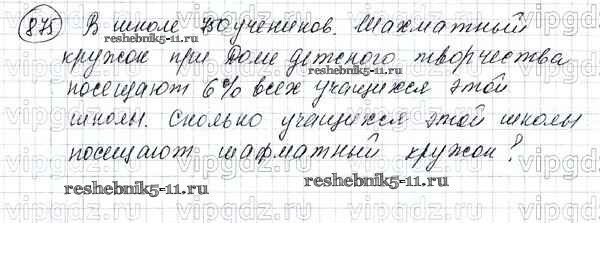 875 В школе 750 учеников. Шахматный
кружок при Доме детского творчества
посещают 6% всех учащихся этой
школы. Сколько учащихся этой школы
посещают шафматный кружок?
reshebnik5-11.ru
reshebnik5-11.ru
reshebnik5-11.ru
reshebnik5-11.ru